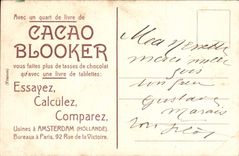 Avec un quart de livre de
CACAO
BLOOKER
vous faites plus de tasses de chocolat
qu'avec une livre de tablettes:
Essayez,
Calculez,
Comparez,
Usines à AMSTERDAM (HOLLANDE).
Bureaux à PARIS, 92 Rue de la Victoire.
merci mille
fois
Gustave